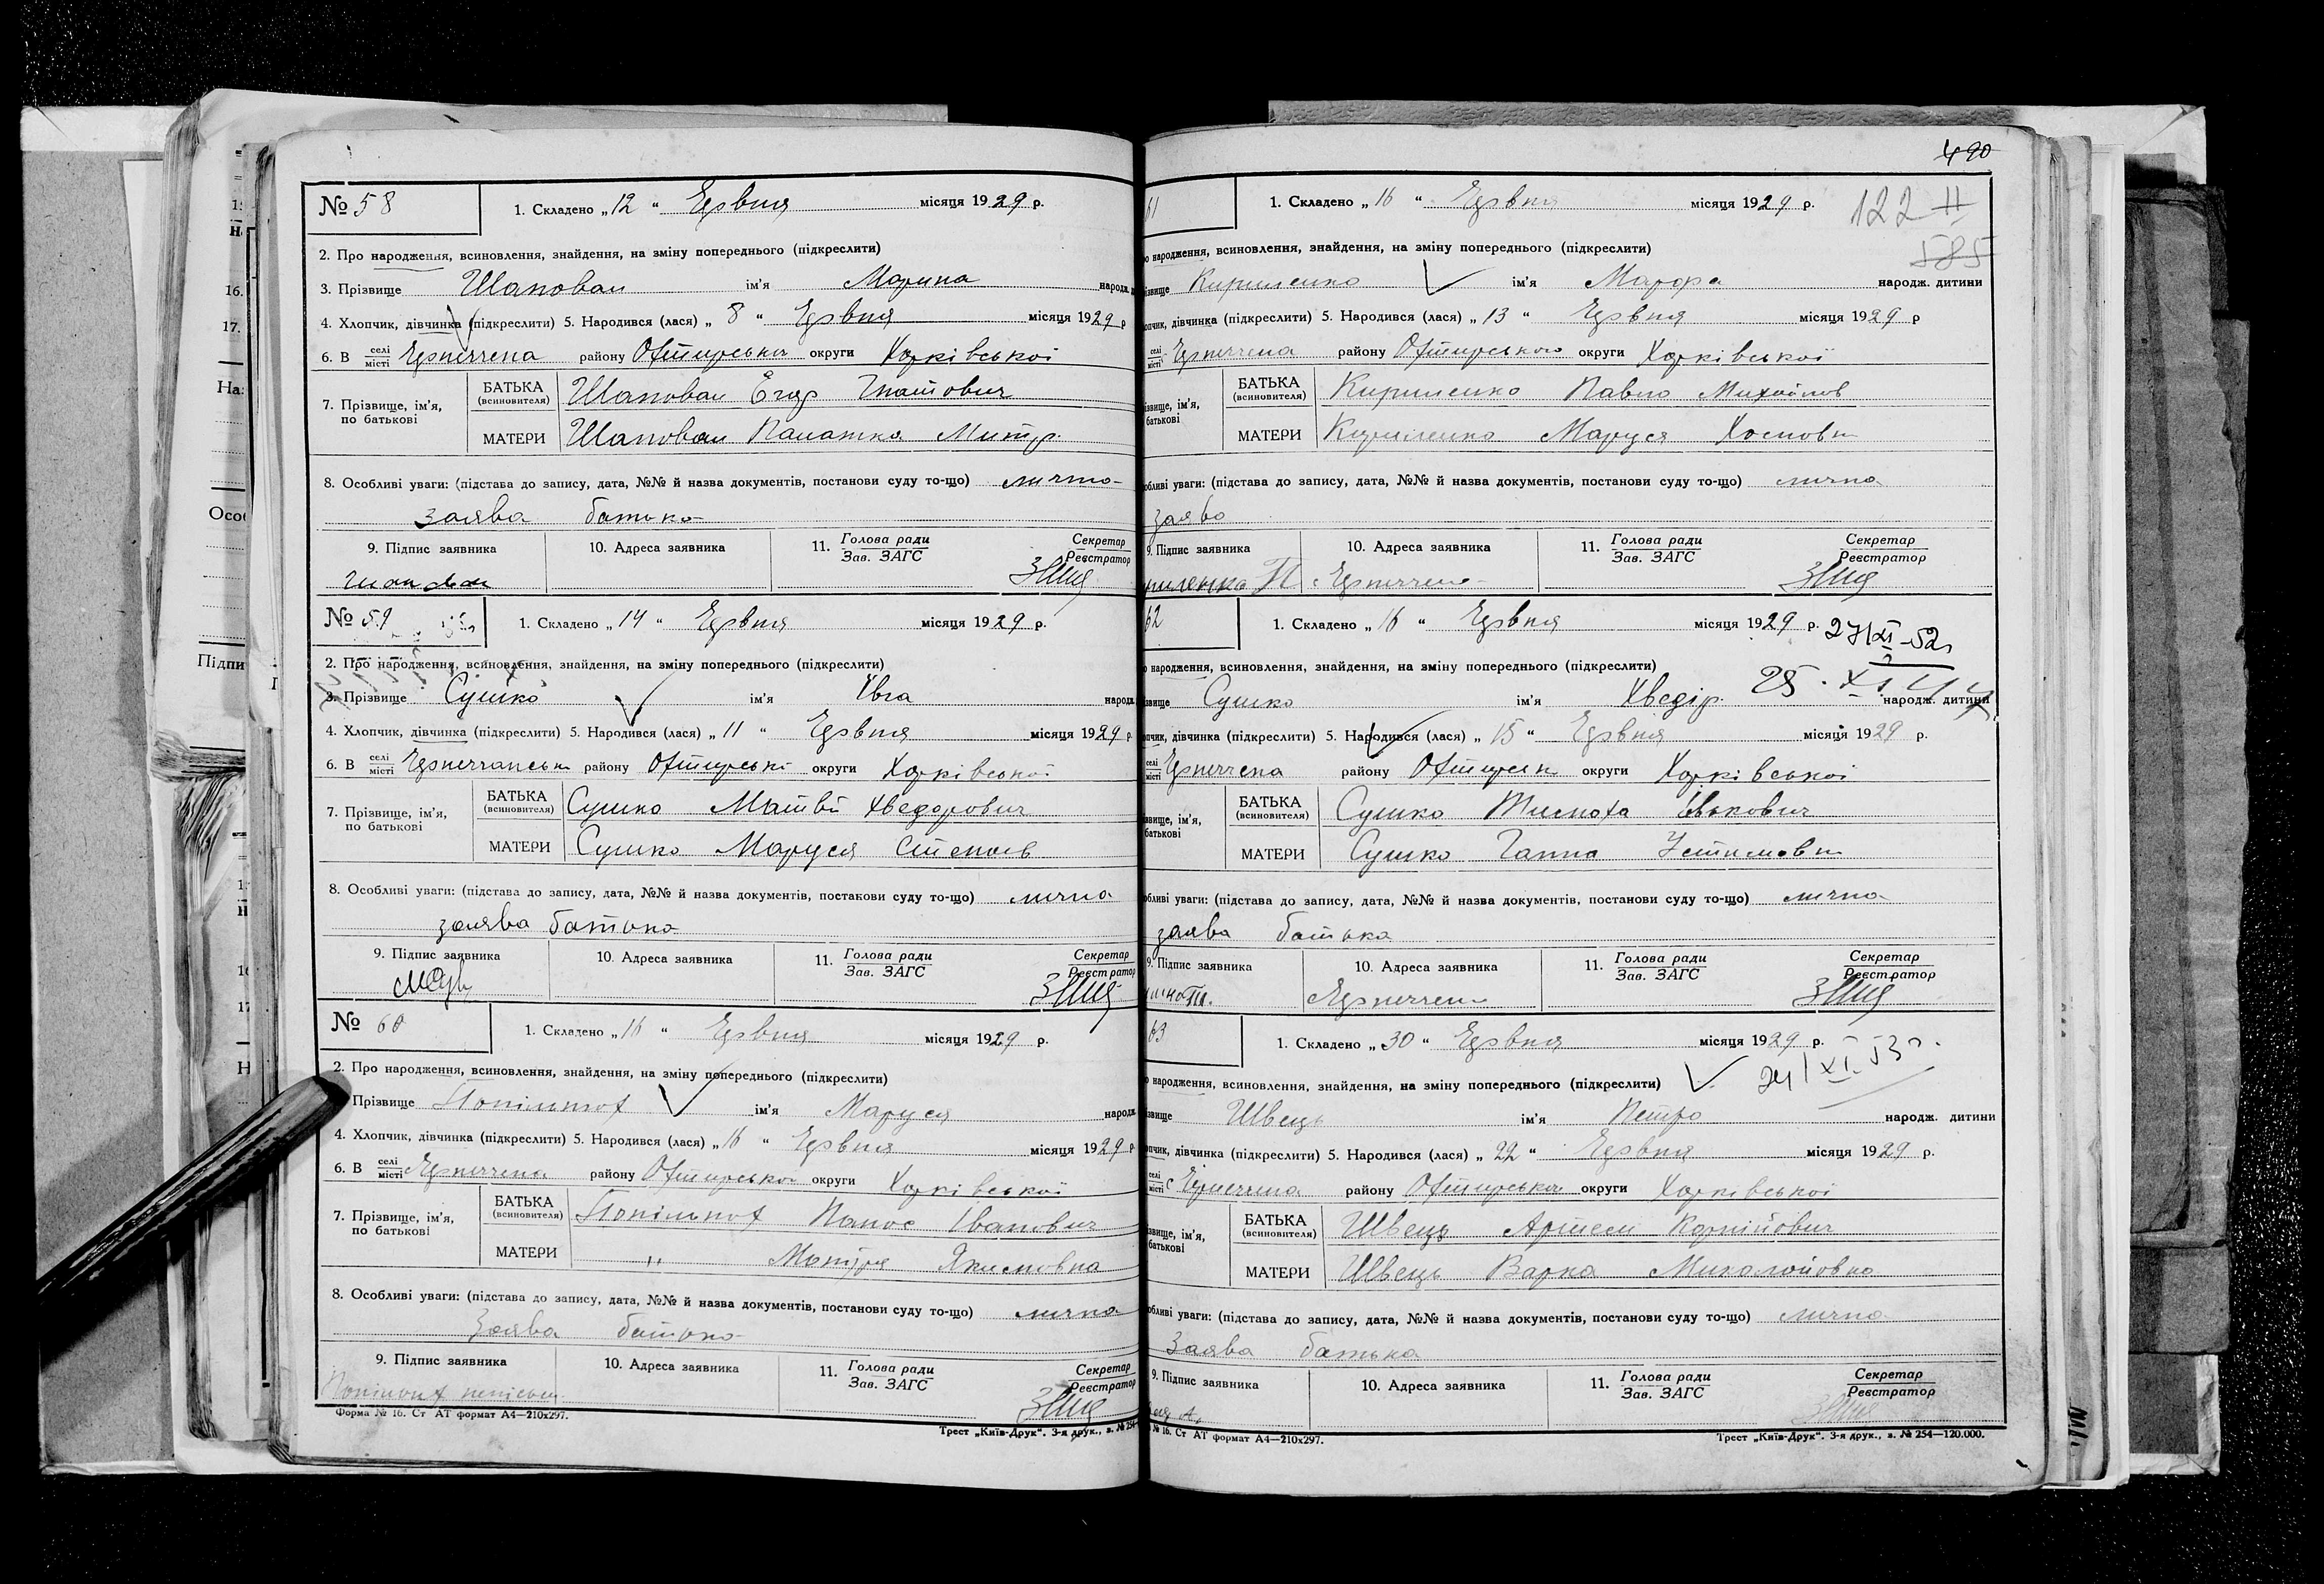 № 58
1. Складено „ 12 “ Червня місяця 1929 р.
2. Про народження, всиновлення, знайдення, на зміну попереднього (підкреслити)
3. Прізвище Шаповал ім'я Марина народж.
4. Хлопчик, дівчинка (підкреслити) 5. Народився (лася) „ 8 “ Червня місяця 1929 р
6. В селі місті району Охтирської округи Харківської
7. Прізвище, ім'я, по батькові
БАТЬКА (всиновителя) Шаповал Єгор Гнатович
МАТЕРИ Шаповал Палажка Митр.
8. Особливі уваги: (підстава до запису, дата, №№ й назва документів, постанови суду то-що) лична
заява батька
9. Підпис заявника
10. Адреса заявника
11. Голова ради Зав. ЗАГС
Секретар Реєстратор
Шаповал
№ 59
1. Складено „ 14 “ Червня місяця 1929 р.
2. Про народження, всиновлення, знайдення, на зміну попереднього (підкреслити)
3. Прізвище Сушко ім'я Ївга народж.
4. Хлопчик, дівчинка (підкреслити) 5. Народився (лася) „ 11 “ Червня місяця 1929 р
6. В селі місті району Охтирські округи Харківської
7. Прізвище, ім'я, по батькові
БАТЬКА (всиновителя) Сушко Матвій Хведорович
МАТЕРИ Сушко Маруся Степанів
8. Особливі уваги: (підстава до запису, дата, №№ й назва документів, постакови суду то-що) лична
заява батька
9. Підпис заявника
10. Адреса заявника
11. Голова ради Зав. ЗАГС
Секретар Реєстратор
№ 60
1. Складено „ 16 “ Червня місяця 1929 р.
2. Про народження, всиновлення, знайдення, на зміну попереднього (підкреслити)
Прізвище ім'я Маруся народж.
4. Хлопчик, дівчинка (підкреслити) 5. Народився (лася) „ 16 “ Червня місяця 1929 р
6. В селі місті району Охтирської округи Харківської
7. Прізвище, ім'я, по батькові
БАТЬКА (всиновителя) Панас Іванович
МАТЕРИ „ Мотря Якимовна
8. Особливі уваги: (підстава до запису, дата, №№ й назва документів, постанови суду то-що) лична
Заява батька
9. Підпис заявника
10. Адреса заявника
11. Голова ради Зав. ЗАГС
Секретар Реєстратор
Форма № 16. Ст АТ формат А4—210х297.
Трест „Київ-Друк“. 3-я друк., з. № 254
490
61
1. Складено „ 16 “ Червня місяця 1929 р.
122 II
585
народження, всиновлення, знайдення, на зміну попереднього (підкреслити)
Кириленко ім'я Марфа народж. дитини
дівчинка (підкреслити) 5. Народився (лася) „ 13 “ Червня місяця 1929 р
селі місті району Охтирського округи Харківської
БАТЬКА (всиновителя) Кириленко Павло Михайлов
МАТЕРИ Кириленко Маруся
уваги: (підстава до запису, дата, №№ й назва документів, постанови суду то-що) лична
заява
9. Підпис заявника
10. Адреса заявника
11. Голова ради Зав. ЗАГС
Секретар Реєстратор
62
1. Складено „ 16 “ Червня місяця 1929 р.
27/XI-52
народження, всиновлення, знайдення, на зміну попереднього (підкреслити)
Сушко ім'я Хведір народж. дитини
25.XI 44
дівчинка (підкреслити) 5. Народився (лася) „ 15 “ Червня місяця 1929 р.
селі місті району округи Харківської
БАТЬКА (всиновителя) Сушко
МАТЕРИ Сушко Ганна Устимовн
уваги: (підстава до запису, дата, №№ й назва документів, постанови суду то-що) лична
заява батька
9. Підпис заявника
10. Адреса заявника
11. Голова ради Зав. ЗАГС
Секретар Реєстратор
63
1. Складено „ 30 “ Червня місяця 1929 р.
24/XI.53 г.
народження, всиновлення, знайдення, на зміну попереднього (підкреслити)
Швець ім'я Петро народж. дитини
дівчинка (підкреслити) 5. Народився (лася) „ 22 “ Червня місяця 1929 р.
селі місті району Охтирської округи Харківської
БАТЬКА (всиновителя) Швець Артем Корнійович
МАТЕРИ Швець Варка Миколойовна
уваги: (підстава до запису, дата, №№ й назва документів, постанови суду то-що) лична
Заява батька
9. Підпис заявника
10. Адреса заявника
11. Голова ради Зав. ЗАГС
Секретар Реєстратор
№ 16. Ст АТ формат А4—210х297.
Трест „Київ-Друк“. 3-я друк., з. № 254—120.000.